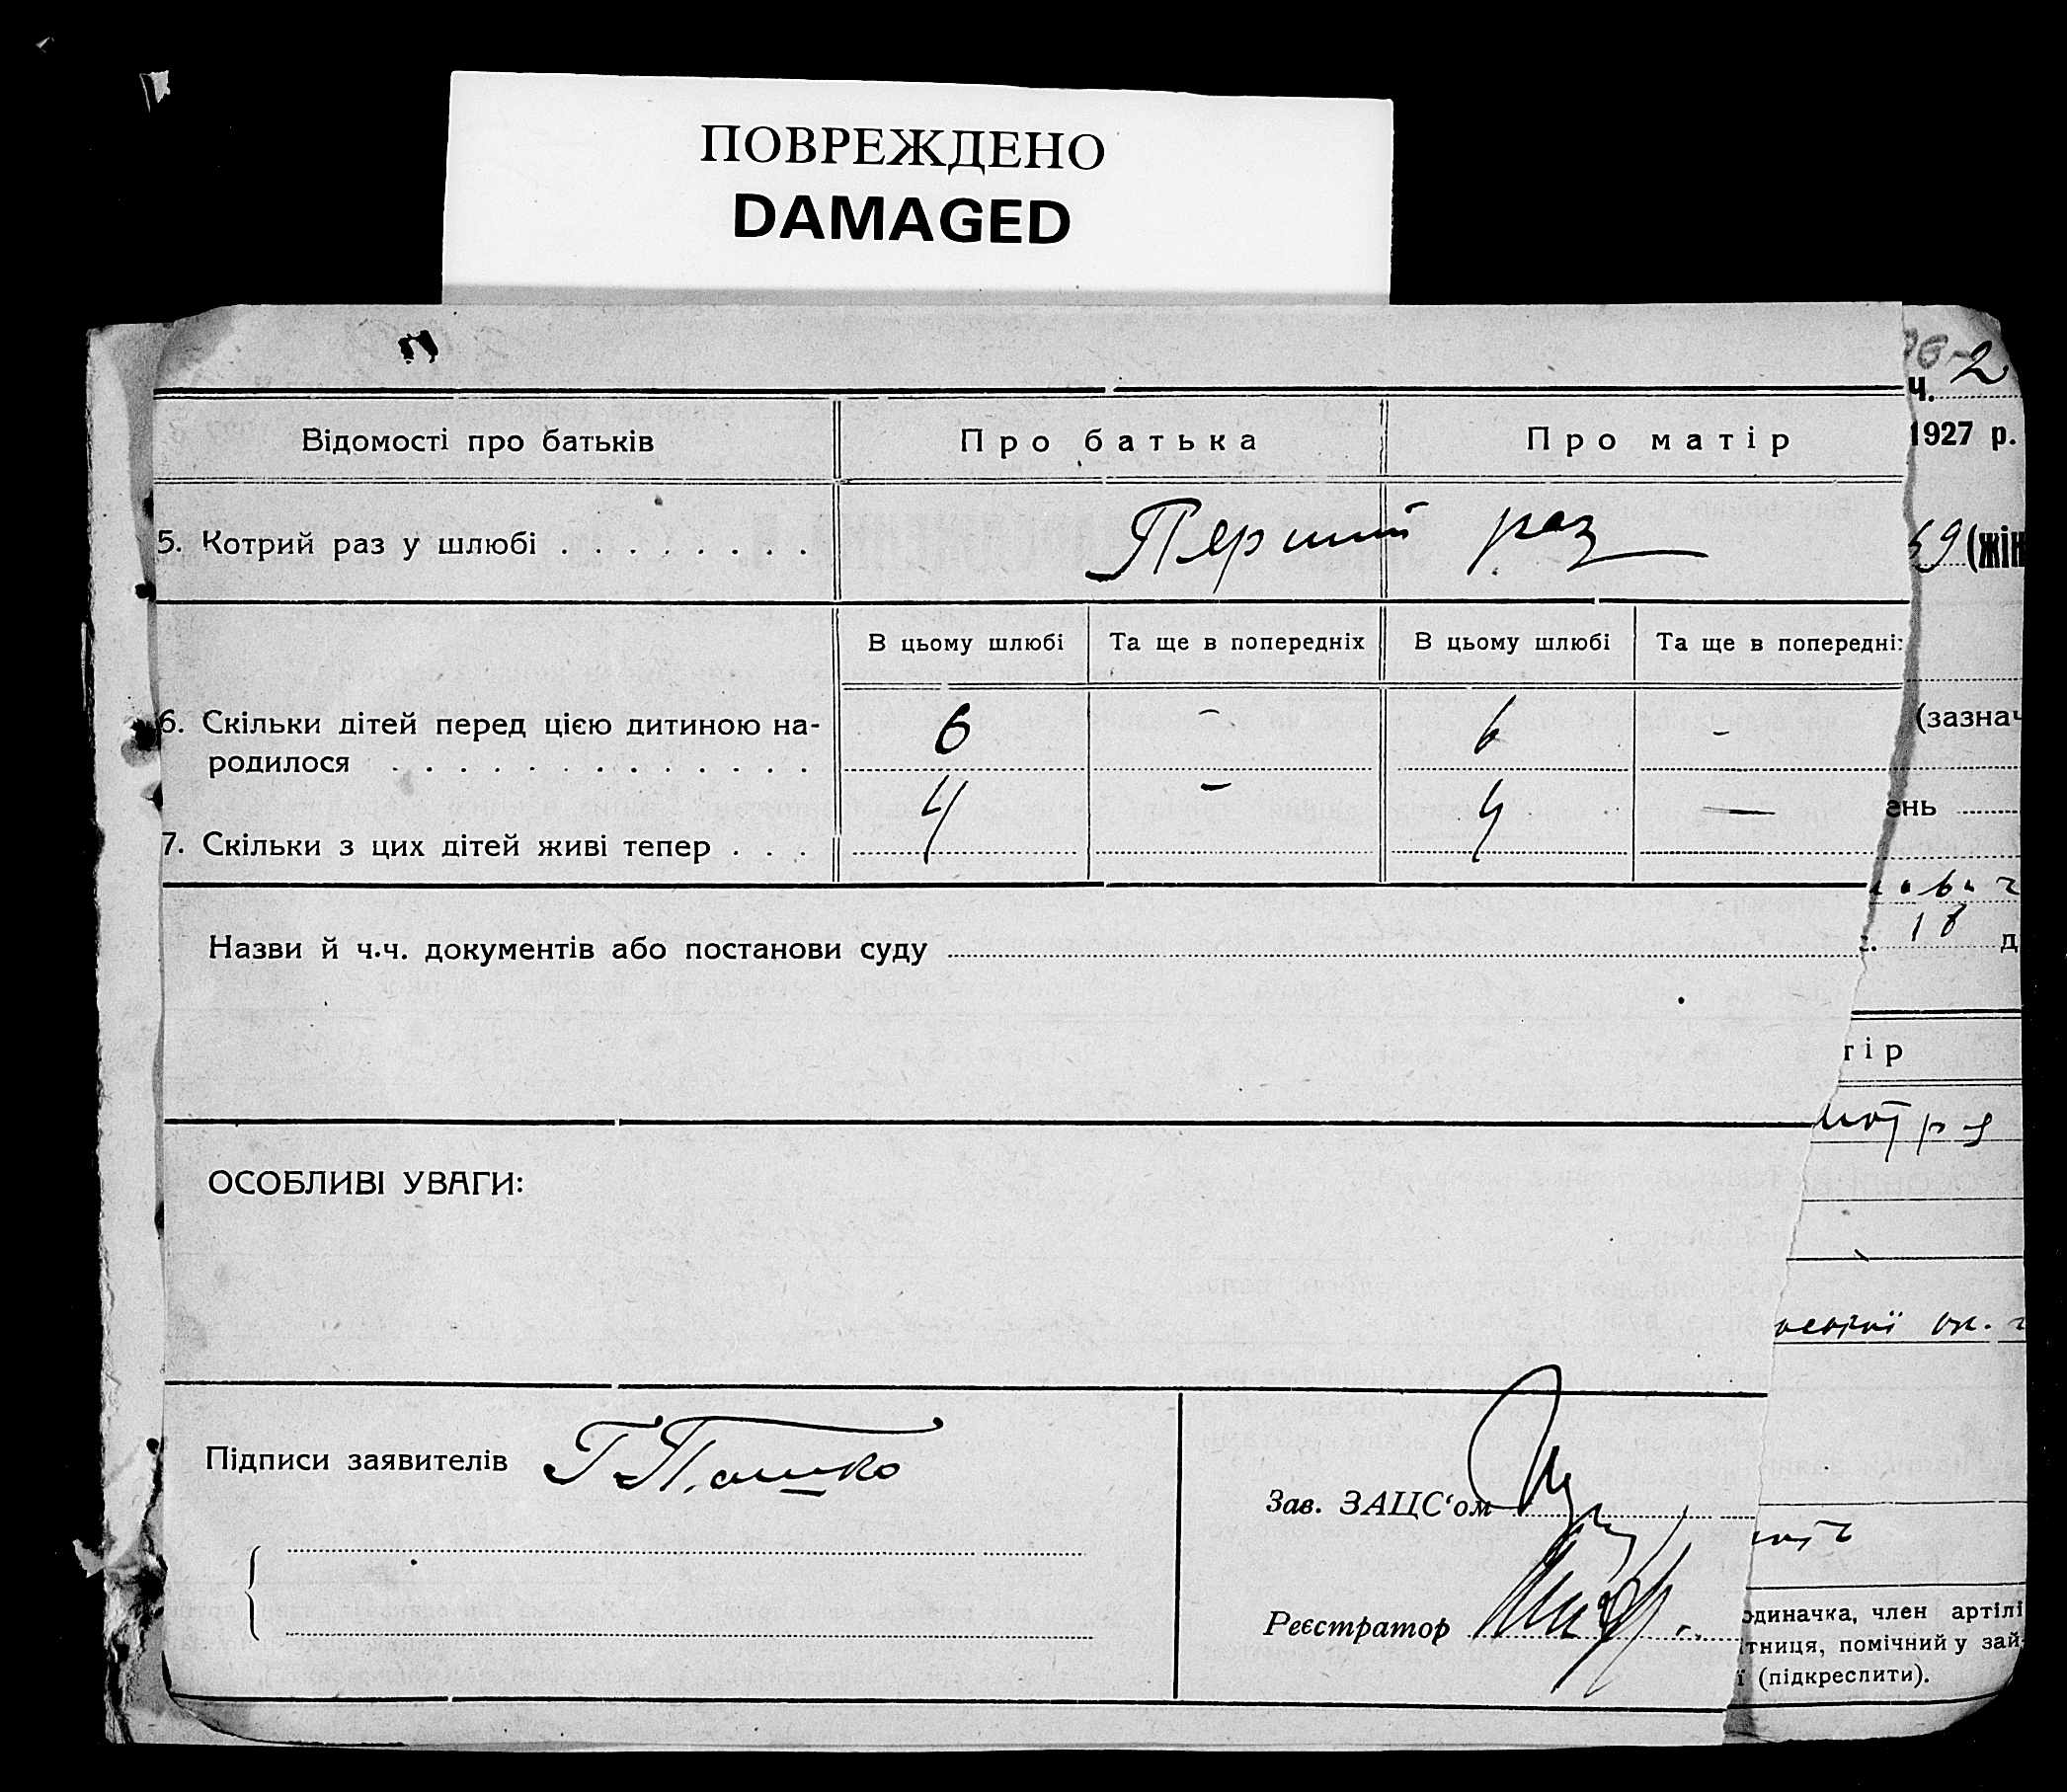 ПОВРЕЖДЕНО
DAMAGED
ч. 2
1927 р.
Відомості про батьків Про батька Про матір
5. Котрий раз у шлюбі . . . . . . . . Перший раз
59 (жін
В цьому шлюбі Та ще в попередніх В цьому шлюбі Та ще в попередні
6. Скільки дітей перед цією дитиною на-
родилося . . . . . . . . . . . . . . 6 - 6 -
(зазнач
7. Скільки з цих дітей живі тепер . . . 4 - 4 -
ень
18 д
Назви й ч.ч. документів або постанови суду
тір
мотря
ОСОБЛИВІ УВАГИ:
ок.
Підписи заявителів Г Пашко
Зав. ЗАЦС‘ом
Реєстратор
одиначка, член артілі
тниця, помічний у зай-
ї (підкреслити).